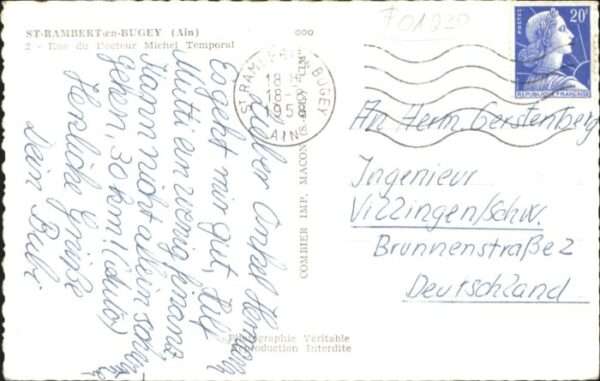 ST-RAMBERT-en-BUGEY (Ain)
2 - Rue du Docteur Michel Temporal
Lieber Onkel Hermann
Es geht mir gut, Hilf
Mutti ein wenig
kann nicht allein
gehen, 30 km! (Auto)
Herzliche Grüße
Dein Bubi
COMBIER IMP. MACON (S.-&-L.) "CIM"
Photographie Véritable
Reproduction Interdite
ST RAMBERT EN BUGEY
18 H
AIN
F 01230
POSTES
20F
REPUBLIQUE FRANÇAISE
An Herrn Gerstenberg
Ingenieur
Villingen/Schw.
Brunnenstraße 2
Deutschland